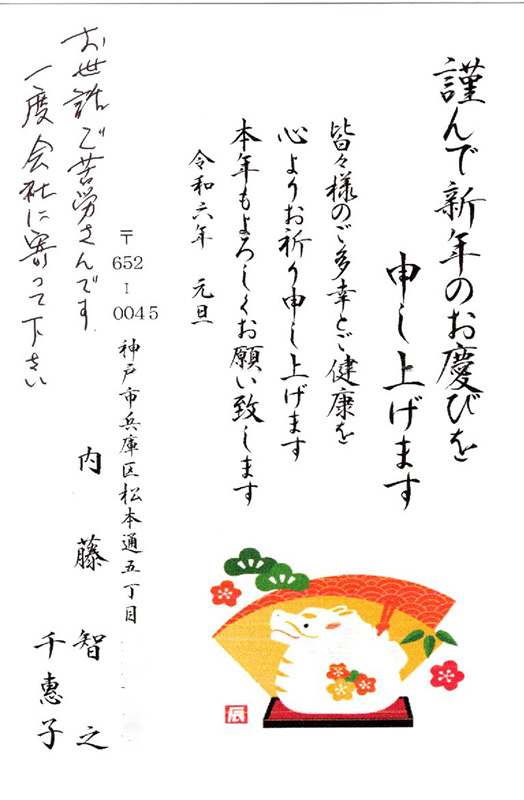 謹んで新年のお慶びを
申し上げます
皆々様のご多幸とご健康を
心よりお祈り申し上げます
本年もよろしくお願い致します
令和六年 元旦
〒652-0045
神戸市兵庫区松本通五丁目
内藤 智之
千惠子
お世話ご苦労さんです
一度会社に寄って下さい
辰